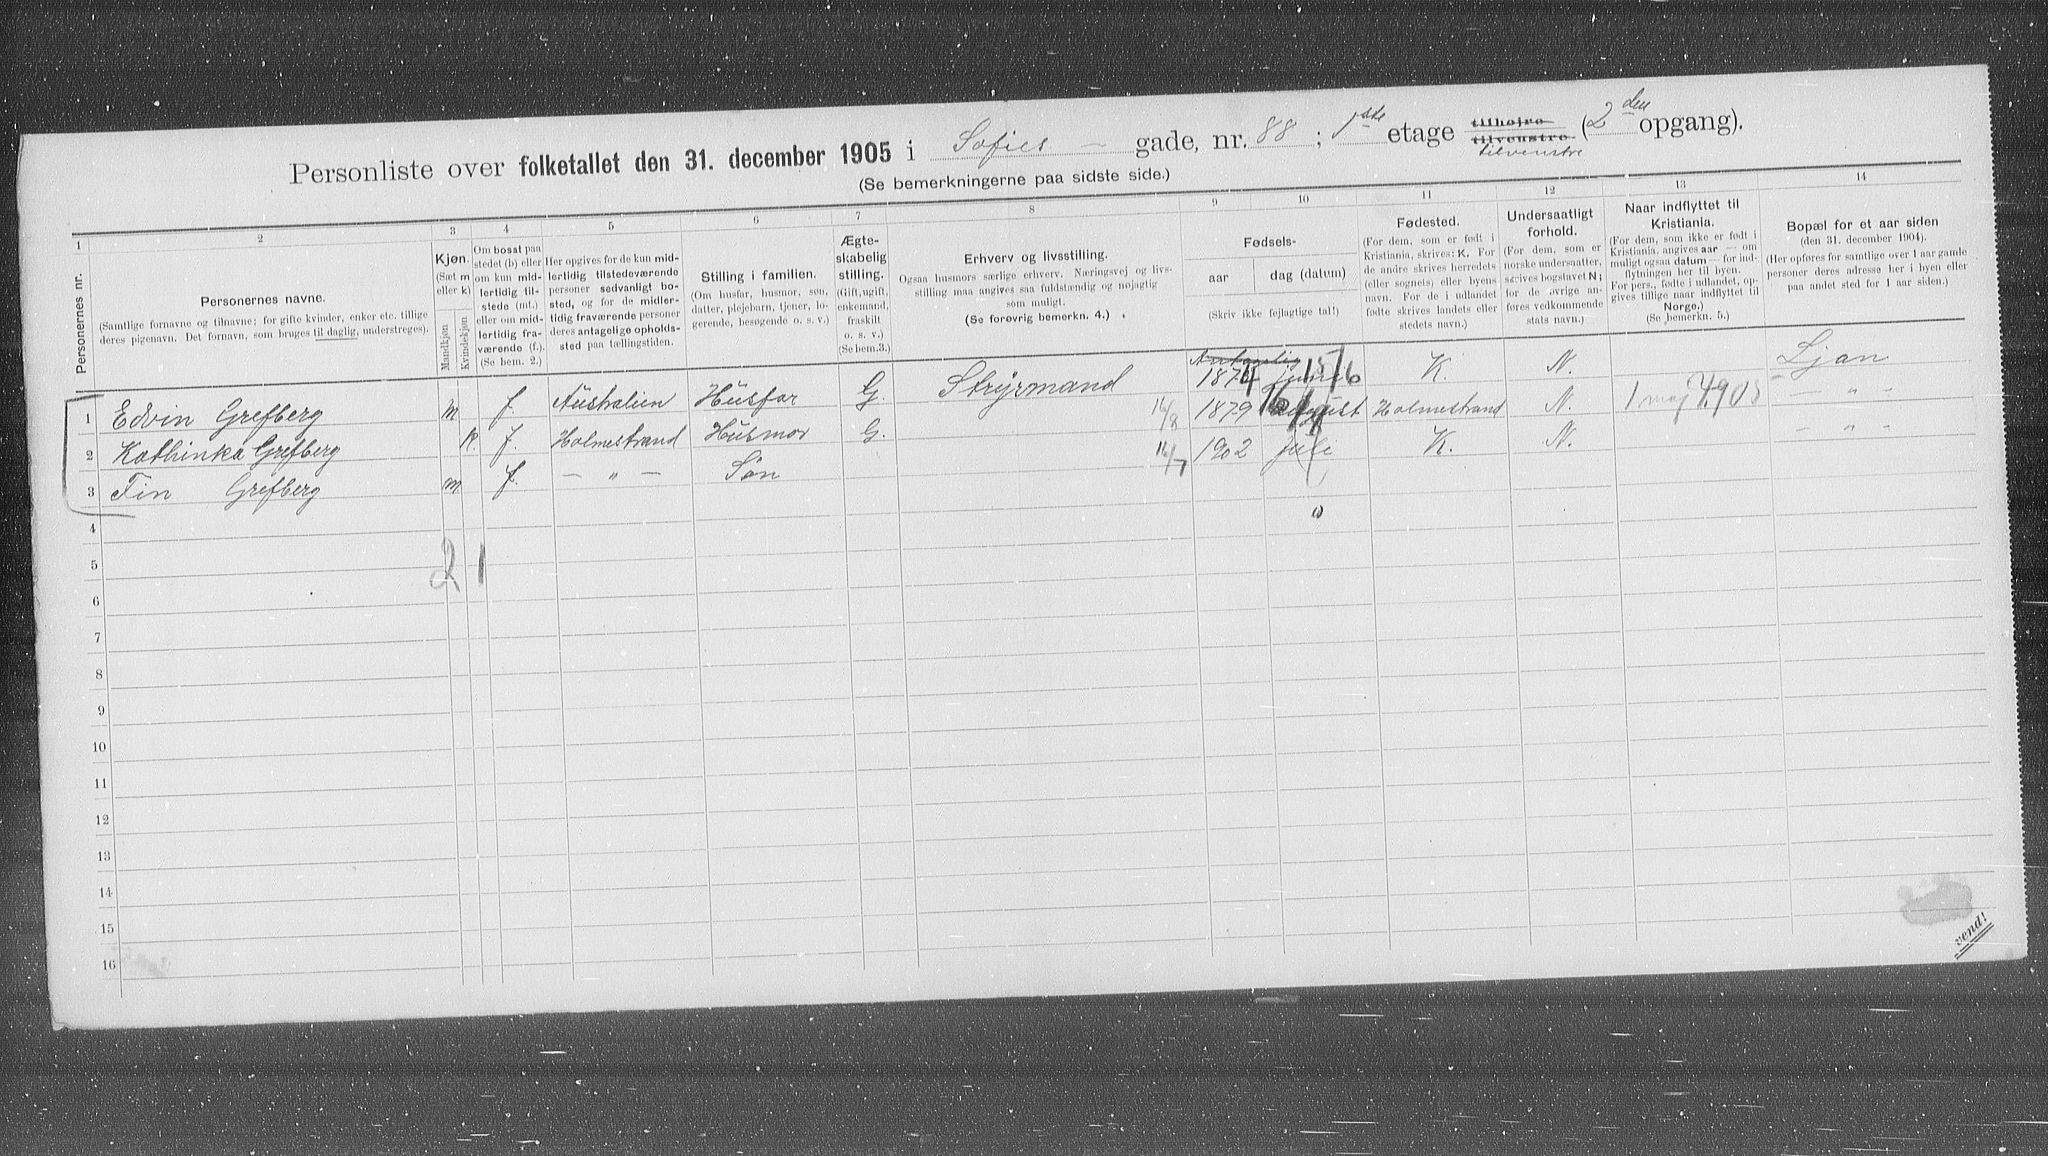 Personliste over folketallet den 31. december 1905 i Sofies — gade, nr. 88 ; 1ste etage tilhøjre tilvenstre tilvenstre (2den opgang).
(Se bemerkningerne paa sidste side.)
1 2 3 4 5 6 7 8 9 10 11 12 13 14
Personernes nr.
Personernes navne.
(Samtlige fornavne og tilnavne; for gifte kvinder, enker etc. tillige
deres pigenavn. Det fornavn, som bruges til daglig, understreges).
Kjøn.
(Sæt m
eller k)
Mandkjøn.
Kvindekjøn.
Om bosat paa
stedet (b) eller
om kun mid-
lertidig til-
stede (mt.)
eller om mid-
lertidig fra-
værende (f.).
(Se bem. 2.)
Her opgives for de kun mid-
lertidig tilstedeværende
personer sedvanligt bo-
sted, og for de midler-
tidig fraværende personer
deres antagelige opholds-
sted paa tællingstiden.
Stilling i familien.
(Om husfar, husmor, søn,
datter, plejebarn, tjener, lo-
gerende, besøgende o. s. v.)
Ægte-
skabelig
stilling.
(Gift, ugift,
enkemand,
fraskilt
o. s. v.)
(Se bem.3.)
Erhverv og livsstilling.
Ogsaa husmors særlige erhverv. Næringsvej og livs-
stilling maa angives saa fuldstændig og nøjagtig
som muligt.
(Se forøvrig bemerkn. 4.)
Fødsels-
aar dag (datum)
(Skriv ikke fejlagtige tal!)
Fødested.
(For dem, som er født i
Kristiania, skrives: K. For
de andre skrives herredets
(eller sognets) eller byens
navn. For de i udlandet
fødte skrives landets eller
stedets navn.)
Undersaatligt
forhold.
(For dem, som er
norske undersaatter,
skrives bogstavet N;
for de øvrige an-
føres vedkommende
stats navn.)
Naar indflyttet til
Kristiania.
(For dem, som ikke er født i
Kristiania, angives aar — om
muligt ogsaa datum — for ind-
flytningen her til byen.
For pers., fødte i udlandet, op-
gives tillige naar indflyttet til
Norge.)
(Se bemerkn. 5.)
Bopæl for et aar siden
(den 31. december 1904).
(Her opføres for samtlige over 1 aar gamle
personer deres adresse her i byen eller
paa andet sted for 1 aar siden.)
1 Edvin Grefberg m f. Australien Husfar G. Stryrmand 1874 15/6 K. N. Ljan
2 Kathinka Grefberg k. f. Holmestrand Husmor G. 16/8 1879 august Holmestrand N. 1 maj — „ —
3 Fin Grefberg m f. — „ — Søn 16/7 1902 Juli K. N. — „ —
4
5 2 1
6
7
8
9
10
11
12
13
14
15
16
vend!